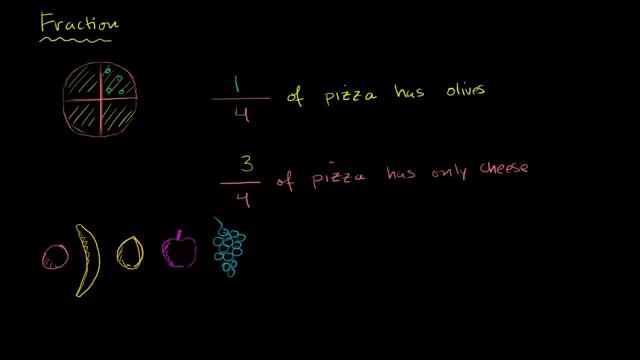 Fraction
1/4 of pizza has olives
3/4 of pizza has only cheese